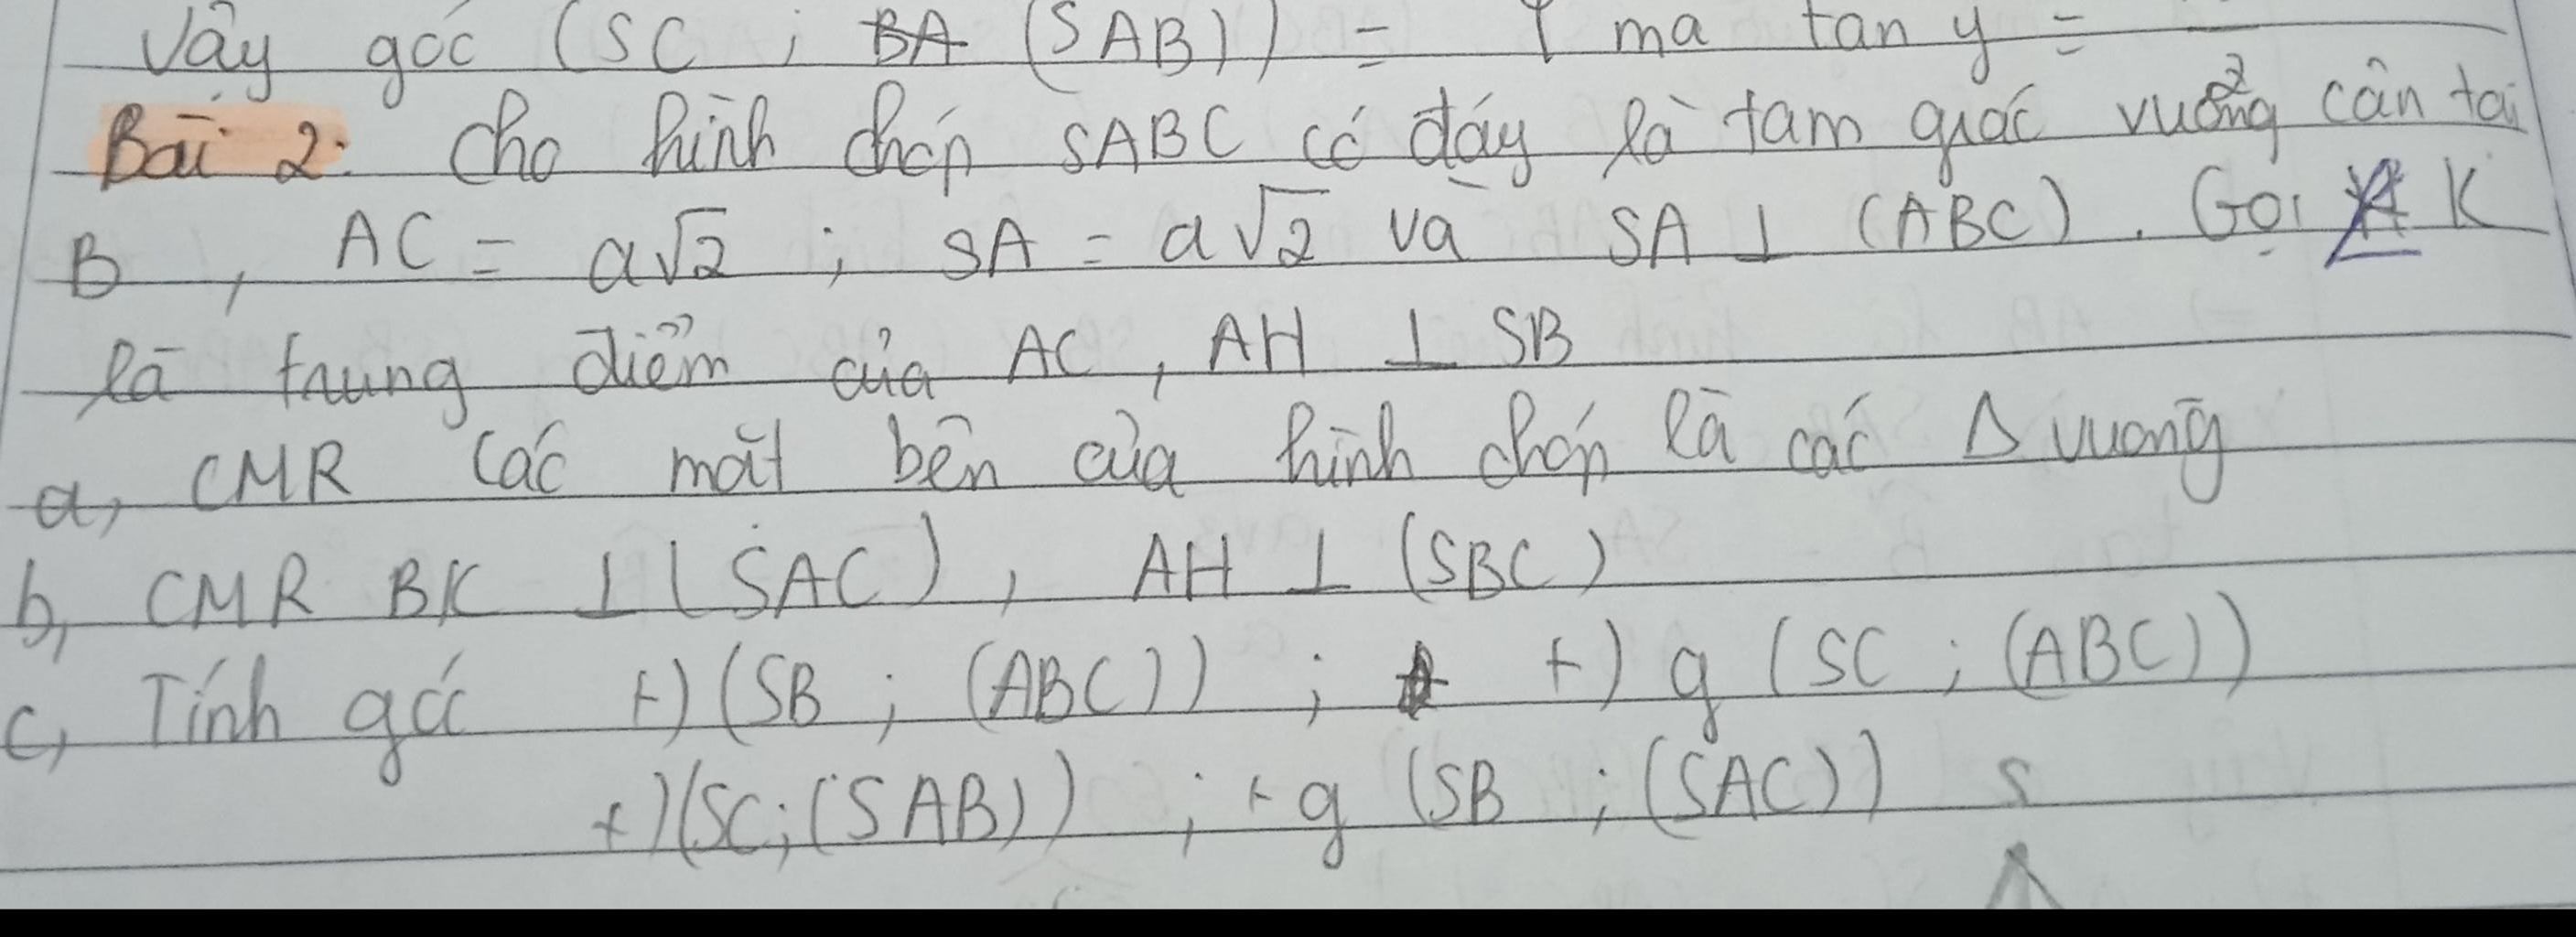 Vậy góc (SC ; BA (SAB)) = mà tan y =
Bài 2: Cho hình chóp SABC có đáy là tam giác vuông cân tại
B , AC = a√2 ; SA = a√2 và SA ⊥ (ABC) . Gọi K
là trung điểm của AC , AH ⊥ SB
a, CMR các mặt bên của hình chóp là các Δ vuông
b, CMR BK ⊥ (SAC) , AH ⊥ (SBC)
c, Tính góc +) (SB ; (ABC)) ; +) g (SC ; (ABC))
+) (SC; (SAB)) ; + g (SB ; (SAC)) S